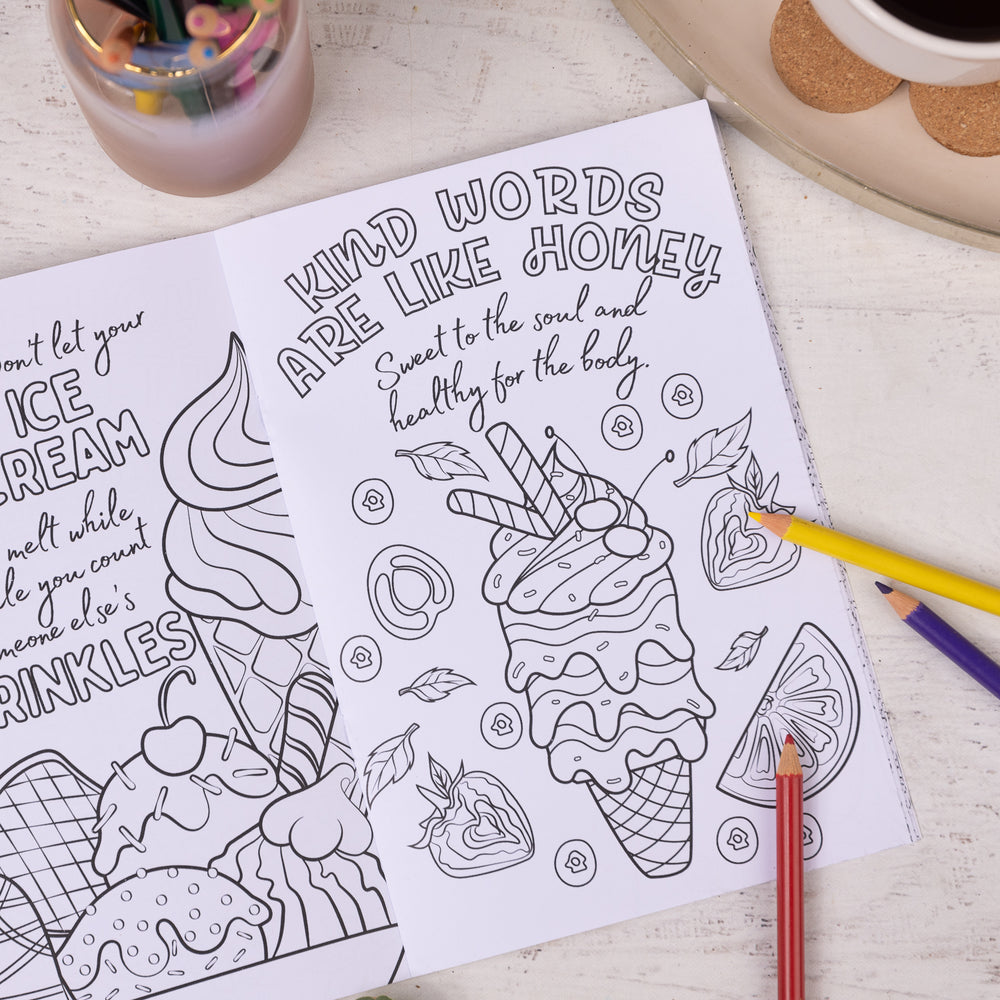 on't let your
ICE
REAM
melt while
le you count
meone else's
RINKLES
KIND WORDS
ARE LIKE HONEY
Sweet to the soul and
healthy for the body.